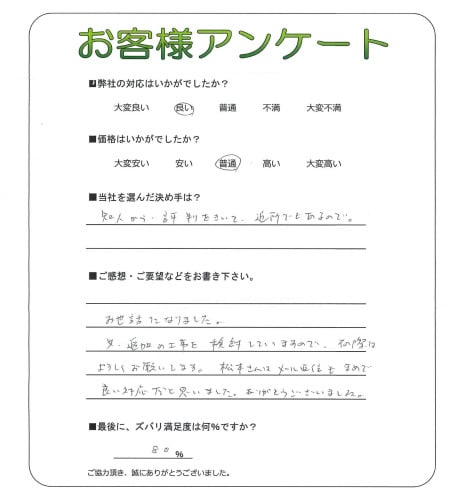 お客様アンケート
■弊社の対応はいかがでしたか？
大変良い 良い 普通 不満 大変不満
■価格はいかがでしたか？
大変安い 安い 普通 高い 大変高い
■当社を選んだ決め手は？
知人から評判をきいて、近所でもあるので。
■ご感想・ご要望などをお書き下さい。
お世話になりました。
又、追加の工事を検討していますので、その際は
よろしくお願いします。松本さんはメール返信もまめで
良い対応だと思いました。ありがとうございました。
■最後に、ズバリ満足度は何%ですか？
80%
ご協力頂き、誠にありがとうございました。